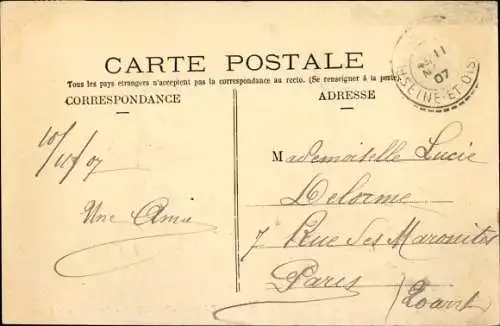 CARTE POSTALE
Tous les pays étrangers n'acceptent pas la correspondance au recto. (Se renseigner à la poste)
CORRESPONDANCE
ADRESSE
11
07
SEINE-ET-OISE
10/11/07
Une Amie
Mademoiselle Lucie
Delorme
7 Rue des Maronites
Paris